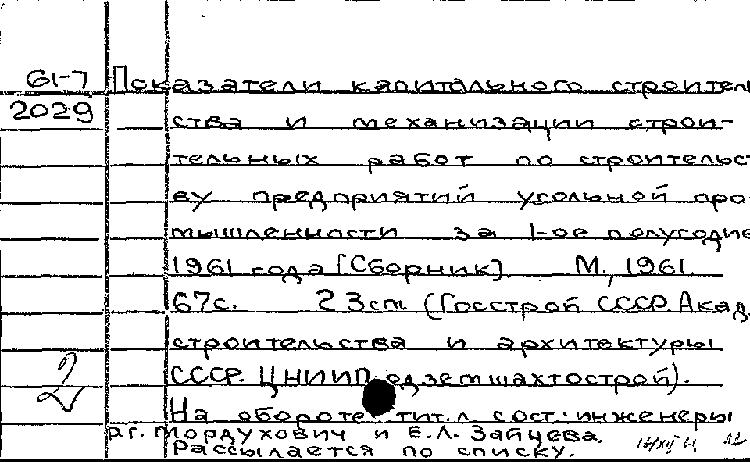 61-7
2029
Показатели капитального строитель
ства и механизации строи-
тельных работ по строительст
ву предприятий угольной про
мышленности за 1-ое полугодие
1961 года [Сборник] М., 1961
67с. 23см (Госстрой СССР. Акад.
строительства и архитектуры
СССР. ЦНИИПодземшахтострой).
2
На обороте тит.л. сост.: инженеры
Р.Г. Мордухович и Е.Л. Зайцева.
Рассылается по списку.